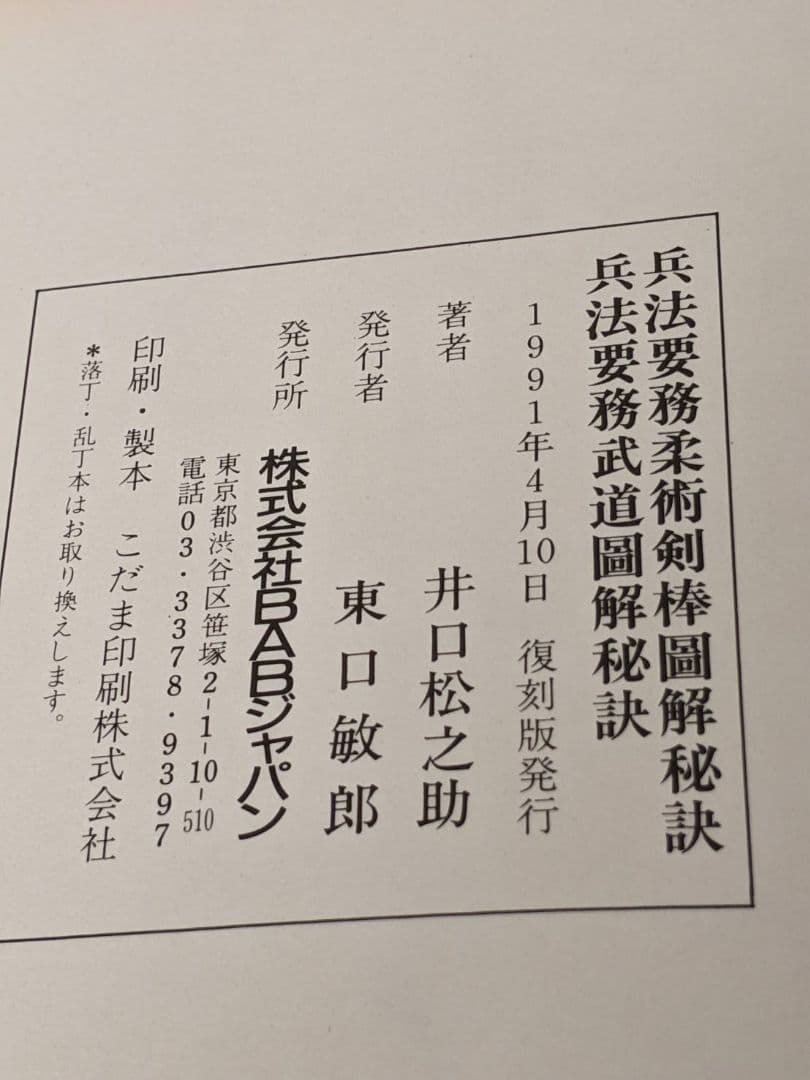 兵法要務柔術剣棒圖解秘訣
兵法要務武道圖解秘訣
1991年4月10日　復刻版発行
著者　井口松之助
発行者　東口敏郎
発行所　株式会社BABジャパン
東京都渋谷区笹塚2-1-10-510
電話03・3378・9397
印刷・製本　こだま印刷株式会社
*落丁・乱丁本はお取り換えします。